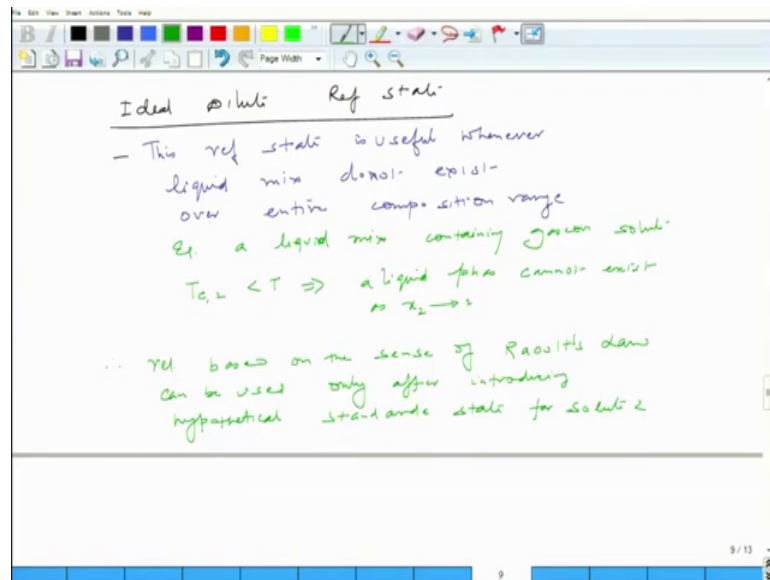 File Edit View Insert Actions Tools Help
Page Width
Ideal Dilute Ref state
- This ref state is useful whenever
liquid mix donot exist
over entire composition range
Eg. a liquid mix containing gaseous solute
Tc,2 < T ⇒ a liquid phas cannot exist
as x2 → 1
∴ ref based on the sense of Raoult's Law
can be used only after introducing
hypothetical standard state for solute 2
9 / 13
9